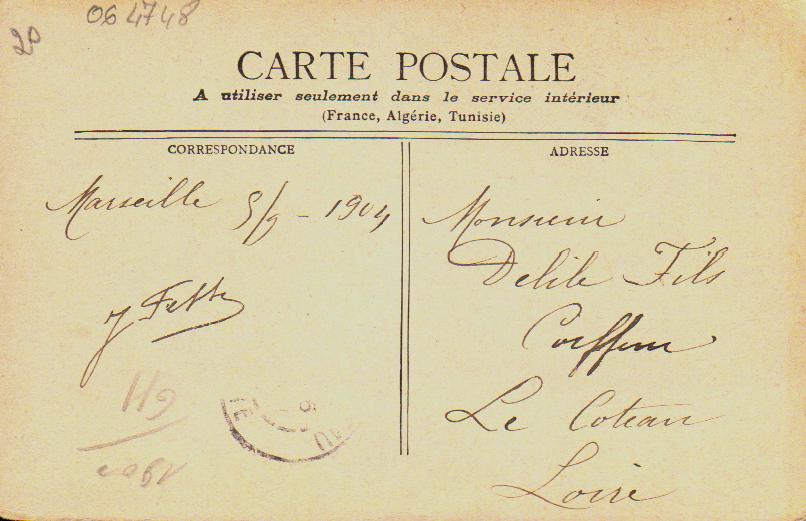 064748
20
CARTE POSTALE
A utiliser seulement dans le service intérieur
(France, Algérie, Tunisie)
CORRESPONDANCE
Marseille 5/9 - 1904
J
119
ADRESSE
Monsieur
Delile Fils
Coiffeur
Le Coteau
Loire